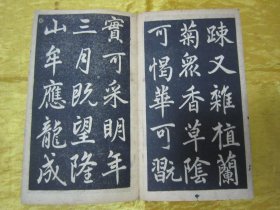 踈又雜植蘭
菊眾香草陰
可愒華可翫
實可采明年
三月既望隆
山牟應龍成